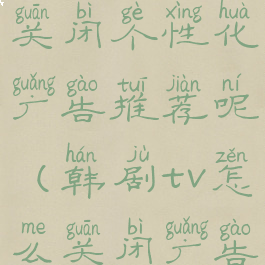 guān bì gè xìng huà
关闭个性化
guǎng gào tuī jiàn ní
广告推荐呢
hán jù zěn
（韩剧tv怎
me guān bì guǎng gào
么关闭广告